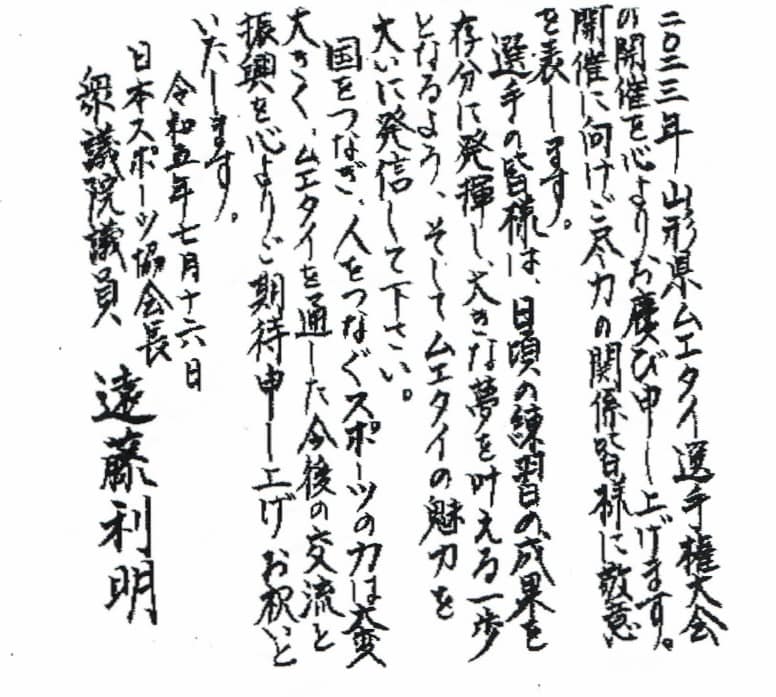 二〇二三年 山形県ムエタイ選手権大会
の開催を心よりお慶び申し上げます。
開催に向けご尽力の関係各皆様に敬意
を表します。
選手の皆様は、日頃の練習の成果を
存分に発揮し、大きな夢を叶える一歩
となるよう、そしてムエタイの魅力を
大いに発信して下さい。
国をつなぎ、人をつなぐスポーツの力は大変
大きく、ムエタイを通した今後の交流と
振興を心よりご期待申し上げお祝いと
いたします。
令和五年七月十六日
日本スポーツ協会長
衆議院議員 遠藤利明